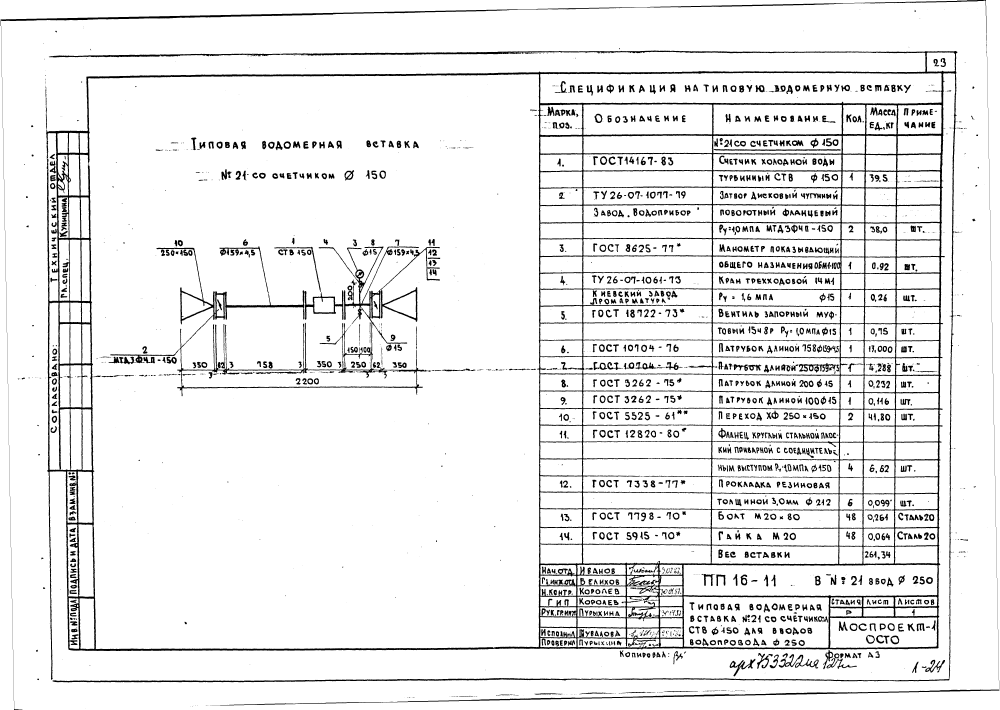 23
Типовая водомерная вставка
№21 со счетчиком Ø 150
10
250×150
6
Ø159×4,5
1
СТВ 150
4
3
8
Ø15
7
Ø159×4,5
11
12
13
14
200
5
9
Ø15
2
МТДЗФЧ.П-150
150 100
350 62 3 758 3 350 3 250 62 350
3
3
2200
Спецификация на типовую водомерную вставку
Марка, поз. Обозначение Наименование Кол. Масса ед., кг Приме-чание
№21 со счетчиком Ø150
1. ГОСТ 14167-83 Счетчик холодной воды
турбинный СТВ Ø150 1 39,5
2 ТУ 26-07-1077-79 Затвор дисковый чугунный
Завод "Водоприбор" поворотный фланцевый
Ру=1,0 МПа МТДЗФЧ П-150 2 38,0 шт.
3. ГОСТ 8625-77* Манометр показывающий
общего назначения ОБМ1-100 1 0.92 шт.
4. ТУ 26-07-1061-73 Кран трехходовой 14М1
Киевский завод "Промарматура" Ру = 1,6 МПа Ø15 1 0,26 шт.
5. ГОСТ 18722-73* Вентиль запорный муф-
товый 15ч8р Ру=1,0 МПа Ø15 1 0,75 шт.
6. ГОСТ 10704-76 Патрубок длиной 758 Ø159×4,5 1 13,000 шт.
7. ГОСТ 10704-76 Патрубок длиной 250 Ø159×4,5 1 4,288 шт.
8. ГОСТ 3262-75* Патрубок длиной 200 Ø15 1 0,232 шт.
9. ГОСТ 3262-75* Патрубок длиной 100 Ø15 1 0,116 шт.
10. ГОСТ 5525-61** Переход ХФ 250×150 2 41,80 шт.
11. ГОСТ 12820-80* Фланец круглый стальной плос-
кий приварной с соединитель-
ным выступом Ру 1,0 МПа Ø150 4 6,62 шт.
12. ГОСТ 7338-77* Прокладка резиновая
толщиной 3,0мм Ø 212 6 0,099 шт.
13. ГОСТ 7798-70* Болт М20×80 48 0,261 Сталь20
14. ГОСТ 5915-70* Гайка М20 48 0,064 Сталь20
Вес вставки 261,34
Согласовано:
Технический отдел
Гл. спец. Куницына
Инв № подл Подпись и дата Взам. инв №
Нач. отд. Иванов
Гл. инж. отд. Великов
Н. контр. Королев
ГИП Королев
Рук. групп. Пурыхина
Исполнил Шувалова
Проверил Пурыхина
ПП 16-11 В №21 ввод Ø 250
Типовая водомерная
вставка №21 со счётчиком
СТВ Ø150 для вводов
водопровода Ø 250
Стадия Лист Листов
Р 1
Моспроект-1
ОСТО
Копировал:
Формат А3
1-24